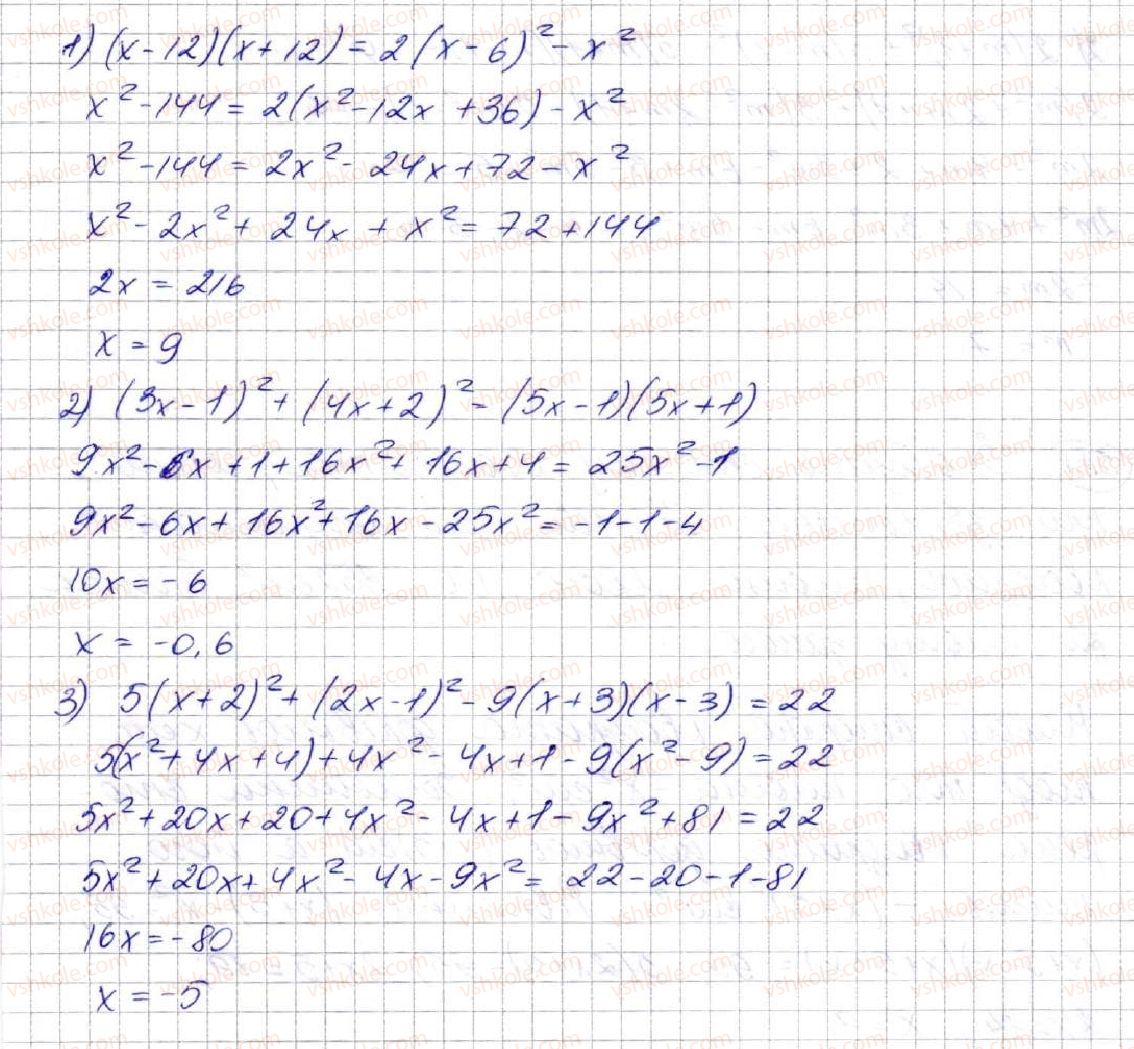 1) (x-12)(x+12) = 2(x-6)² - x²
x² - 144 = 2(x² - 12x + 36) - x²
x² - 144 = 2x² - 24x + 72 - x²
x² - 2x² + 24x + x² = 72 + 144
2x = 216
x = 9
2) (3x-1)² + (4x+2)² - (5x-1)(5x+1)
9x² - 6x + 1 + 16x² + 16x + 4 = 25x² - 1
9x² - 6x + 16x² + 16x - 25x² = -1 - 1 - 4
10x = -6
x = -0,6
3) 5(x+2)² + (2x-1)² - 9(x+3)(x-3) = 22
5(x² + 4x + 4) + 4x² - 4x + 1 - 9(x² - 9) = 22
5x² + 20x + 20 + 4x² - 4x + 1 - 9x² + 81 = 22
5x² + 20x + 4x² - 4x - 9x² = 22 - 20 - 1 - 81
16x = -80
x = -5
vshkole.com